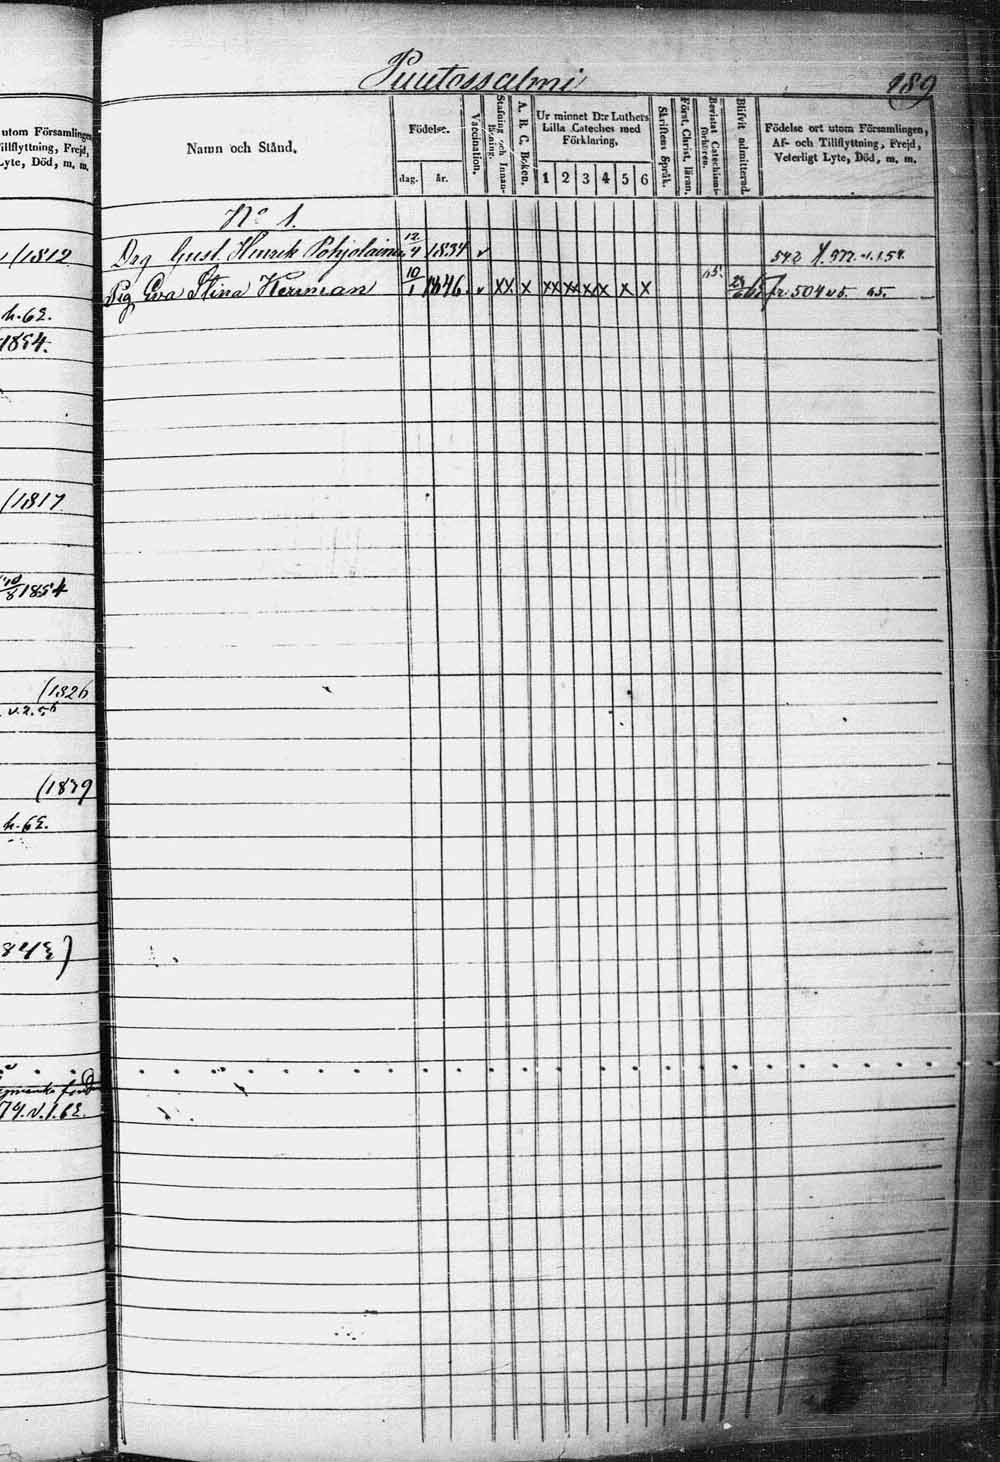 utom Församlingen,
Tillflyttning, Frejd,
Lyte, Död, m. m.
(1812
h. 62.
1854.
(1817
10/8 1854
(1826
v. 2. 56
(1839
h. 62.
1843)
79. v. 1. 62.
Puutossalmi
189
Namn och Stånd.
Födelse.
dag.
år.
Vaccination.
Stafning och Innan-
läsning.
A. B. C. Boken.
Ur minnet D:r Luthers
Lilla Cateches med
Förklaring.
1 2 3 4 5 6
Skriftens Språk.
Först. Christ. läran.
Bevistat Catechismi-
förhören.
Blifvit admitterad.
Födelse ort utom Församlingen,
Af- och Tillflyttning, Frejd,
Veterligt Lyte, Död, m. m.
No 1.
Drg Gust. Henrik Pohjolainen 12/4 1834 v 542 f. 577. v. 1. 54.
Pig Eva Stina Herrman 10/1 1846. v XX X XX XX X X X X 65. fr. 504 v 5. 65.